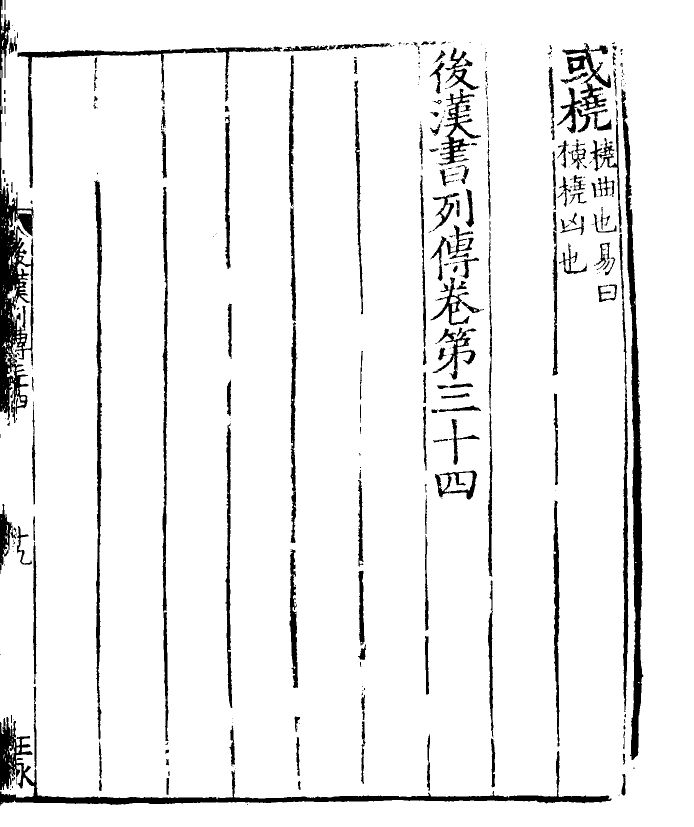 或橈
橈曲也易曰
棟橈凶也
後漢書列傳卷第三十四
後漢列傳三十四
王永